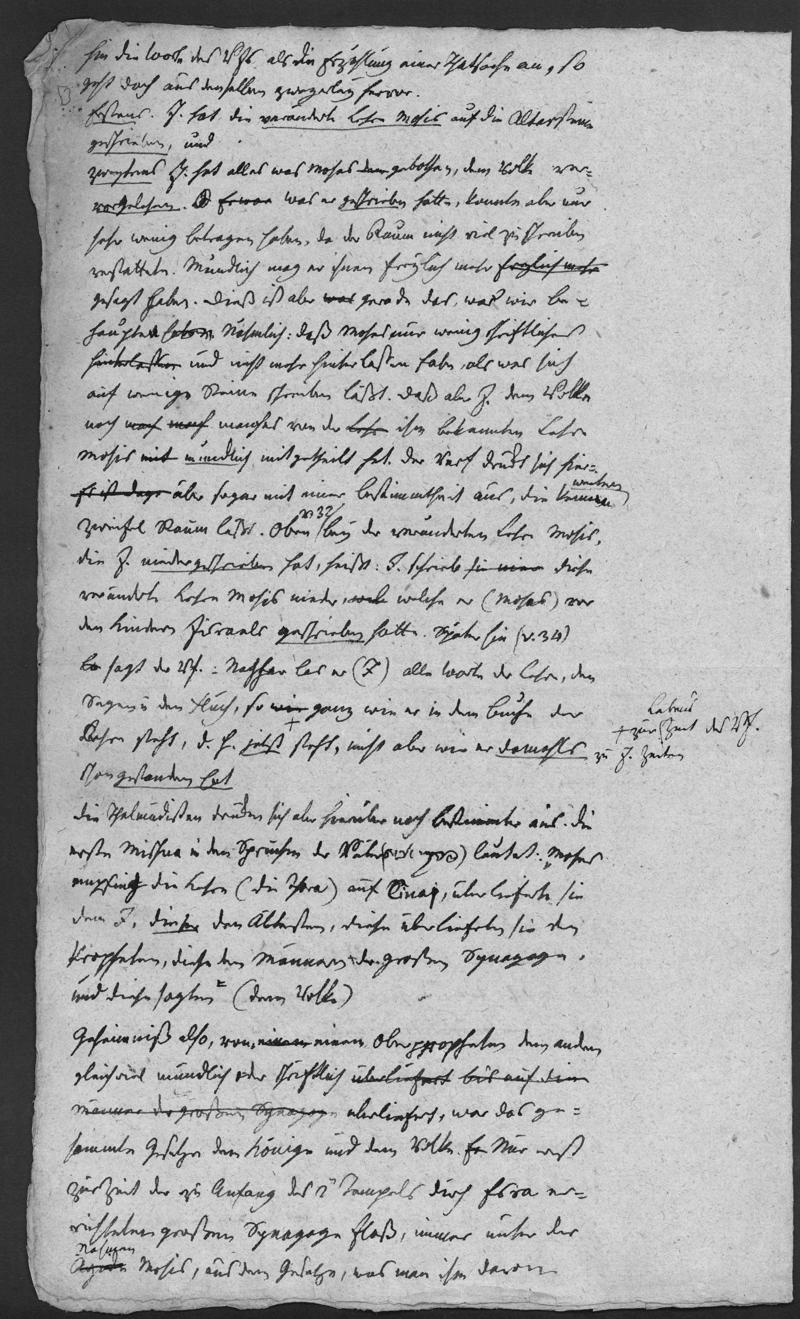 hin die Worte des Vfs als die Erzählung einer Thatsache an, so
geht doch aus denselben zweyerley hervor.
Erstens. J. hat die veränderte Lehre Mosis auf die Altarsteine
geschrieben, und
zweytens J. hat alles was Moses geboten, dem Volke
vorgelesen. was er geschrieben hatte, konnte aber nur
sehr wenig betragen haben, da der Raum nicht viel zu schreiben
verstattete. Mündlich mag er ihnen freylich mehr freylich mehr
gesagt haben. Dieß ist aber was gerade das, was wir be=
haupten Nähmlich: daß Moses nur wenig schriftliches
hinterlassen und nicht mehr hinterlassen habe, als was sich
auf wenige Steine schreiben läßt. Daß aber J. dem Volke
noch noch manches von der Lehre ihm bekannten Lehre
Mosis mit mündlich mitgetheilt hat. Der Verf druckt sich hier=
über sogar mit einer Bestimmtheit aus, die keinen
Zweifel Raum läßt. Oben v 32 bey der veränderten Lehre Mosis,
die J. niedergeschrieben hat, heißt: J. schrieb diese
veränderte Lehre Mosis nieder, welche er (Moses) vor
den Kindern Jisraels geschrieben hatte. Später hin (v. 34)
sagt der Vf.: Nachher las er (J) alle Worte der Lehre, den
Segen u den Fluch, so wie ganz wie er in dem Buche der
Lehre steht, d. h. + jetzt steht, nicht aber wie er damahls
schon gestanden hat
+ zur Zeit des Vf.
zu J. Zeiten
Die Thalmudisten drucken sich aber hierüber noch bestimmter aus. Die
erste Mischna in den Sprüchen der Väter lautet: „Moses
empfing die Lehre (die Thora) auf Sinai, überlieferte sie
dem J, dieser den Ältesten, diese überliefern sie den
Propheten, diese den Männern der großen Synagoge,
und diese sagten“ (dem Volke)
Geheimniß also, von einem einem Oberpropheten dem andern
gleichviel mündlich oder schriftlich überliefert bis auf die
Männer der großen Synagoge überliefert, war das ge=
sammte Gesetze dem Könige und dem Volke. Nur erst
zur Zeit der zu Anfang des 2 Tempels durch Esra er=
richteten großen Synagoge floß, immer unter der
Nahmen Mosis, aus dem Gesetze, was man ihm davon